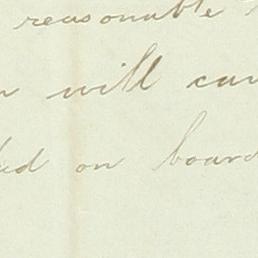 reasonable
will
on board